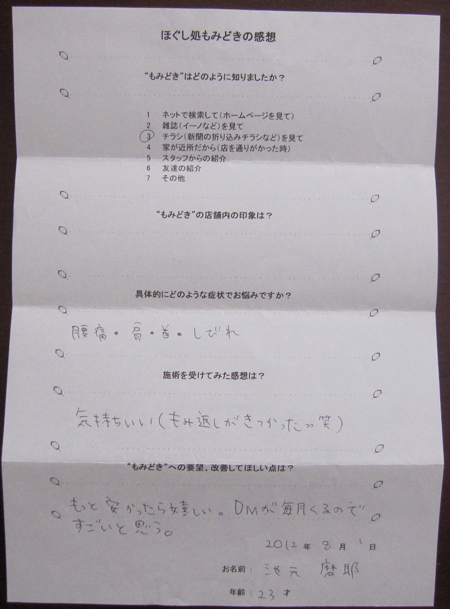 ほぐし処もみどきの感想
“もみどき”はどのように知りましたか？
1 ネットで検索して(ホームページを見て)
2 雑誌(イーノなど)を見て
3 チラシ(新聞の折り込みチラシなど)を見て
4 家が近所だから(店を通りがかった時)
5 スタッフからの紹介
6 友達の紹介
7 その他
“もみどき”の店舗内の印象は？
具体的にどのような症状でお悩みですか？
腰痛・肩・首・しびれ
施術を受けてみた感想は？
気持ちいい(もみ返しがきつかったっ笑)
“もみどき”への要望、改善してほしい点は？
もっと安かったら嬉しい。DMが毎月くるので
すごいと思う。
2012年 8月 1日
お名前： 池元 磨耶
年齢： 23才